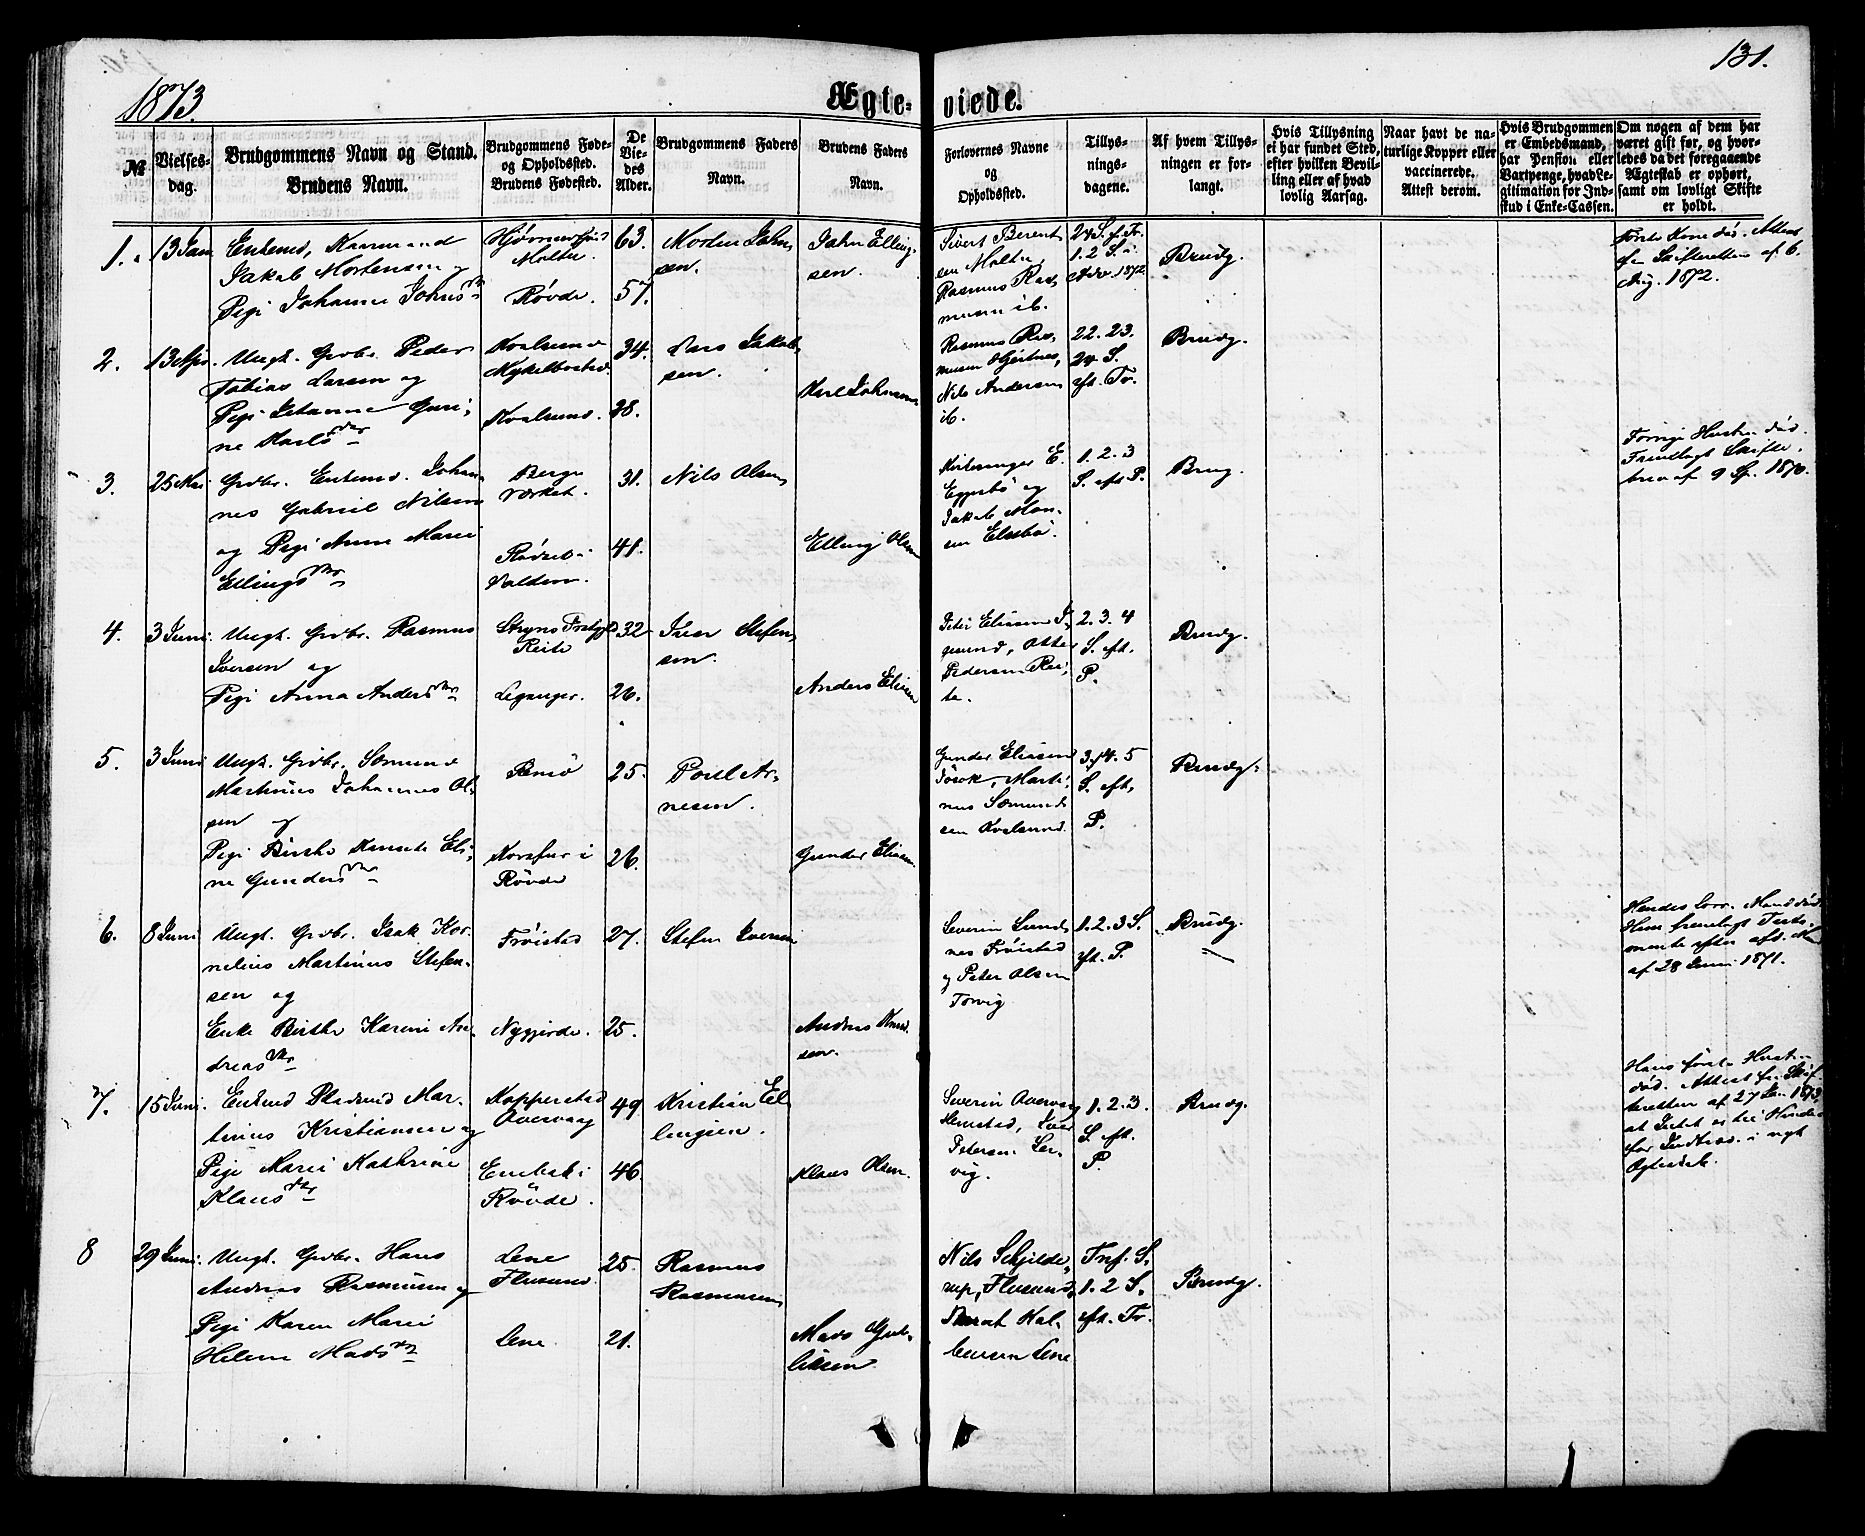 1873.
131.
Ægte-viede.
№
Vielses-
dag.
Brudgommens Navn og Stand.
Brudens Navn.
Brudgommens Føde-
og Opholdssted.
Brudens Fødested.
De
Vie-
des
Alder.
Brudgommens Faders
Navn.
Brudens Faders
Navn.
Forlovernes Navne
og
Opholdssted.
Tillys-
nings-
dagene.
Af hvem Tillys-
ningen er for-
langt.
Hvis Tillysning
ei har fundet Sted,
efter hvilken Bevil-
ling eller af hvad
lovlig Aarsag.
Naar havt de na-
turlige Kopper eller
vaccinerede.
Attest derom.
Hvis Brudgommen
er Embedsmand,
har Pension eller
Vartpenge, hvad Le-
gitimation for Ind-
skud i Enke-Cassen.
Om nogen af dem har
været gift før, og hvor-
ledes da det foregaaende
Ægteskab er ophørt,
samt om lovligt Skifte
er holdt.
1.
13 Jan
Enkemd, Kaarmand
Jakob Mortensen og
Pige Johanne Johnsdtr
Moltu.
Røvde.
63.
57.
Morten John-
sen.
John Elling-
sen.
Sivert Berent-
sen Moltu,
Rasmus Ras-
musen ib.
24 S. ef. Tr.
1. 2 S. i
Adv. 1872
Brudg.
Første Kone død. Attest
fra Skifteretten af 6.
Aug. 1872.
2.
13 Apr.
Ungk. Grdbr. Peder
Tobias Larsen og
Pige Johanne Guri-
ne Karlsdtr
Kvalsund
Myklebostad
Kvalsund.
34.
38.
Lars Jakob-
sen.
Karl Johnsen
Rasmus Ras-
musen Gjertnes,
Nils Andersen
ib.
22. 23.
24 S.
eft. Tr.
Brudg.
3.
25 Mai
Grdbr. Enkemd. Johan-
nes Gabriel Nilsen
og Pige Anne Marie
Ellingsdtr
Berge
Rødset i
Volden.
31.
41.
Nils Olsen
Elling Olsen
Kirkesanger E.
Eggesbø og
Jakob Mon-
sen Elsebø.
1. 2. 3
S. eft. P.
Brug.
Forrige Hustru død.
Fremlagt Skifte-
brev af 9 Sp. 1870.
4.
3 Juni.
Ungk. Grdbr. Rasmus
Iversen og
Pige Anna Andersdtr
Reite
Leganger.
32
26.
Iver Stefen-
sen.
Anders Eliasen
Peter Eliasen I-
gesund, Otter
Pedersen Rei-
te.
2. 3. 4
S. eft.
P.
Brudg.
5.
3 Juni
Ungk. Grdbr. Sæmund
Martinus Johannes Ol-
sen og
Pige Birthe Knude Eli-
ne Gundersdtr
Remø
Korsfur i
Røvde
25.
26.
Poul Ar-
nesen.
Gunder Eliasen
Gunder Eliasen
Jøsok, Marti-
nus Sæmund-
sen Kvalsund.
3. 4. 5
S. eft.
P.
Brudg.
6.
8 Juni
Ungk. Grdbr. Isak Kor-
nelius Martinus Stefen-
sen og
Enke Birthe Karine An-
dreasdtr
Frøistad
Nygjerde.
27.
25.
Stefen Iversen
Andreas Knud-
sen.
Severin Sund-
nes Frøistad
og Peter Olsen
Torvig
1. 2. 3 S.
eft. P.
Brudg.
Hendes forr. Mand død.
Hun fremlagt Testa-
mente efter afd. Md
af 28 Juni 1871.
7.
15 Juni.
Enkemd Rasmus Mar-
tinus Kristiansen og
Pige Marie Kathrine
Klausdtr
Kopperstad
Overvaag
Enebak i
Røvde.
49
46
Kristian El-
lingsen.
Klaus Olsen.
Severin Overvaag
Hemstad, Iver
Petersen Ler-
vig.
1. 2. 3.
S. eft.
P.
Brudg.
Hans første Hustru
død. Attest fra Skif-
teretten af 27 Jan. 1873,
at Intet er til Hinder
for Indtræd. i nyt
Ægteskab.
8
29 Juni.
Ungk. Grdbr. Hans
Andreas Rasmusen og
Pige Karen Marie
Helene Madsdtr
Lene
Flusund.
Lene
25.
21.
Rasmus
Rasmusen
Mads Gut-
liksen
Nils Schjelde-
rup, Flusund,
Bernt Kol-
beinsen Lene
Tref. S.
1. 2 S.
eft. Tr.
Brudg.